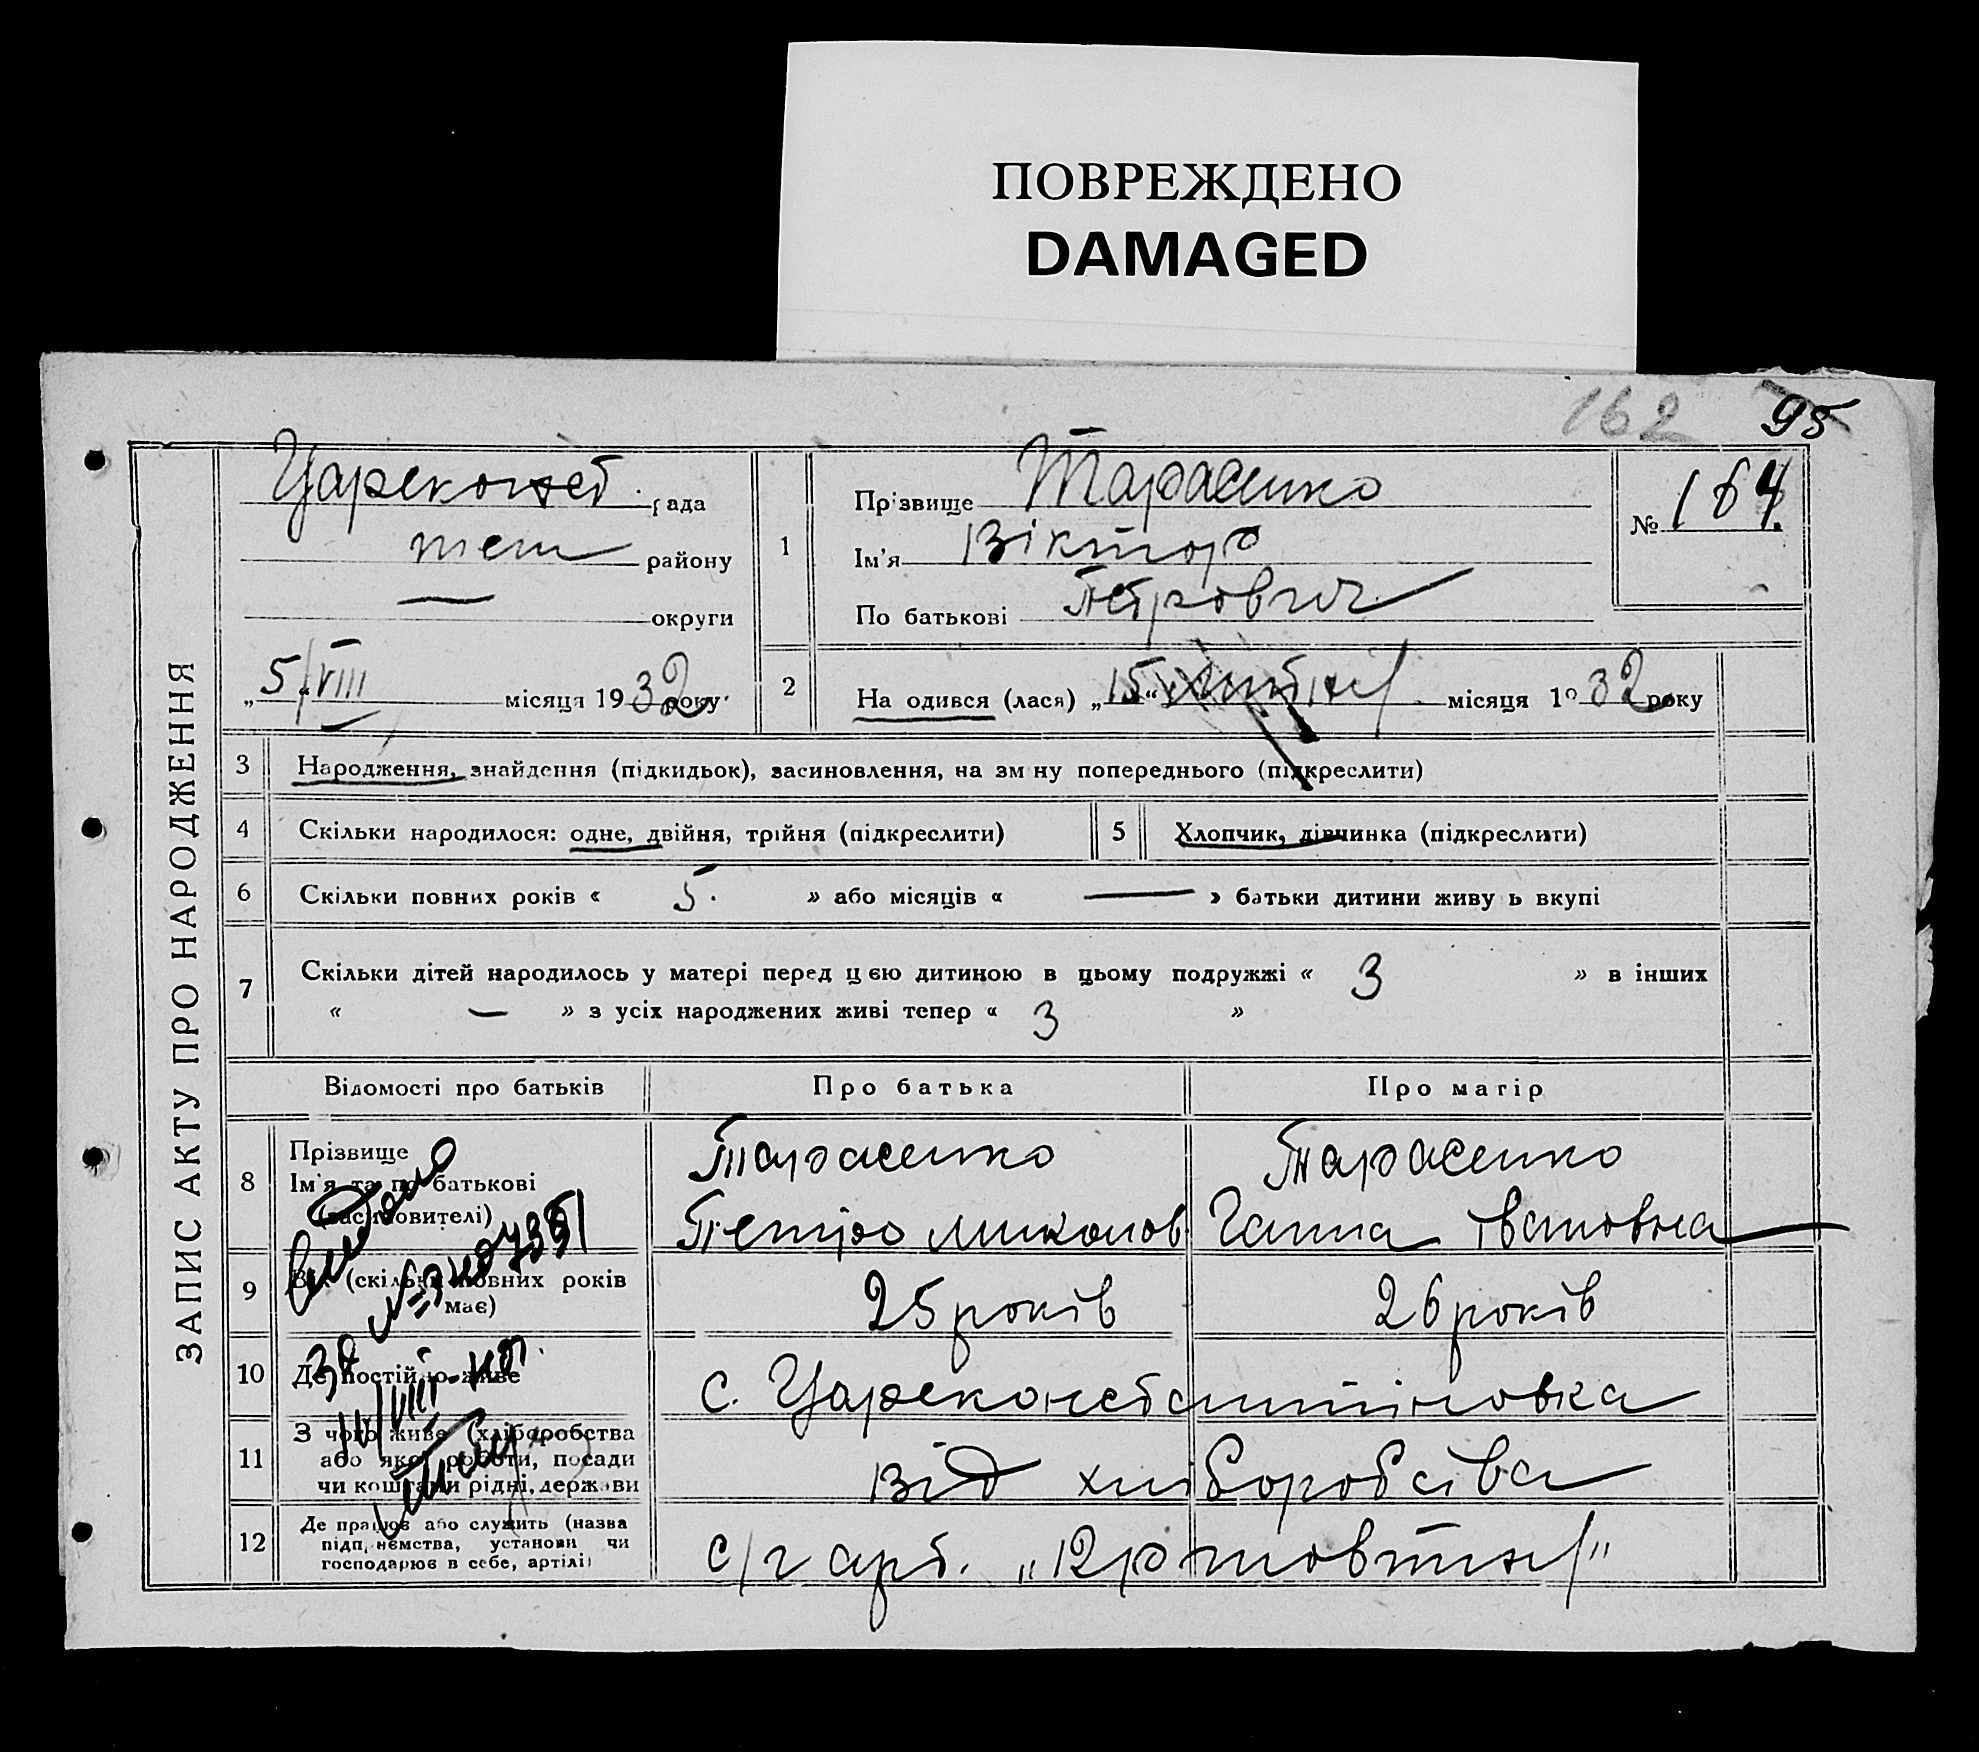 ПОВРЕЖДЕНО
DAMAGED
162 95
ЗАПИС АКТУ ПРО НАРОДЖЕННЯ
Цареконст. рада
району
— округи
„5/VIII місяця 1932 року
1
Прізвище Тарасенко
Ім'я Віктор
По батькові Петрович
№ 164
2 На одився (лася) „15“ місяця 1932 року
3 Народження, знайдення (підкидьок), засиновлення, на зм ну попереднього (підкреслити)
4 Скільки народилося: одне, двійня, трійня (підкреслити) 5 Хлопчик, дівчинка (підкреслити)
6 Скільки повних років « 5. » або місяців « — » батьки дитини живу ь вкупі
7 Скільки дітей народилось у матері перед цією дитиною в цьому подружжі « 3 » в інших
« — » з усіх народжених живі тепер « 3 »
Відомості про батьків Про батька Про матір
8 Прізвище Тарасенко Тарасенко
Ім'я та по батькові
(засиновителі) Петро Миколов Ганна Івановна
9 Вік (скільки повних років має) 25 років 26 років
10 Де постійно живе с. Цареконстантіновка
11 З чого живе (хліборобства
або якої роботи, посади
чи коштами рідні, держави від хліборобства
12 Де працює або служить (назва
підп. немства, установи чи
господарює в себе, артілі) с/г арт. „12р жовтня“